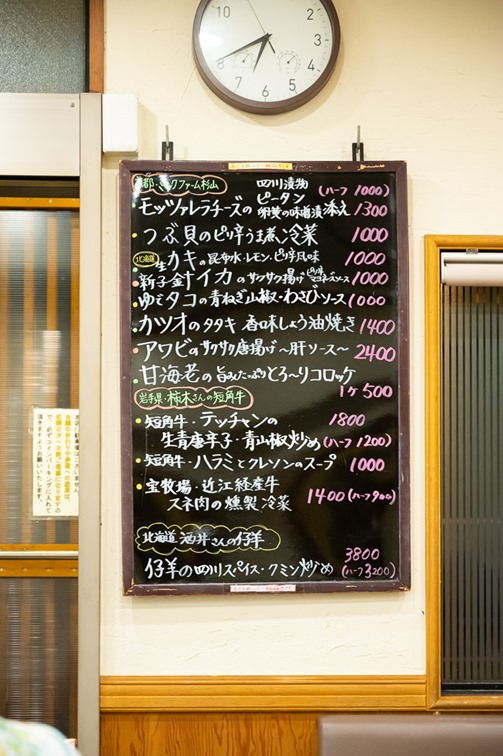 12
1
2
3
4
5
6
7
8
9
10
11
都・ミルクファーム杉山
四川漬物
ピータン
(ハーフ 1000)
モッツァレラチーズの 卵黄の味噌漬 添え 1300
つぶ貝のピリ辛うま煮冷菜 1000
北海道
生カキの昆布水・レモン・ピリ辛風味 1000
新子針イカのサクサク揚げ ピリ辛マヨネーズソース 1000
ゆでタコの青ねぎ山椒・わさびソース 1000
カツオのタタキ 香味しょう油焼き 1400
アワビのサクサク唐揚げ〜肝ソース〜 2400
甘海老の旨みたっぷりとろ〜りコロッケ
1ヶ500
岩手県・柿木さんの短角牛
短角牛・テッチャンの 1800
生青唐辛子・青山椒炒め (ハーフ1200)
短角牛・ハラミとクレソンのスープ 1000
宝牧場・近江経産牛
スネ肉の燻製冷菜 1400(ハーフ900)
北海道 酒井さんの仔羊
3800
仔羊の四川スパイス・クミン炒め (ハーフ3200)